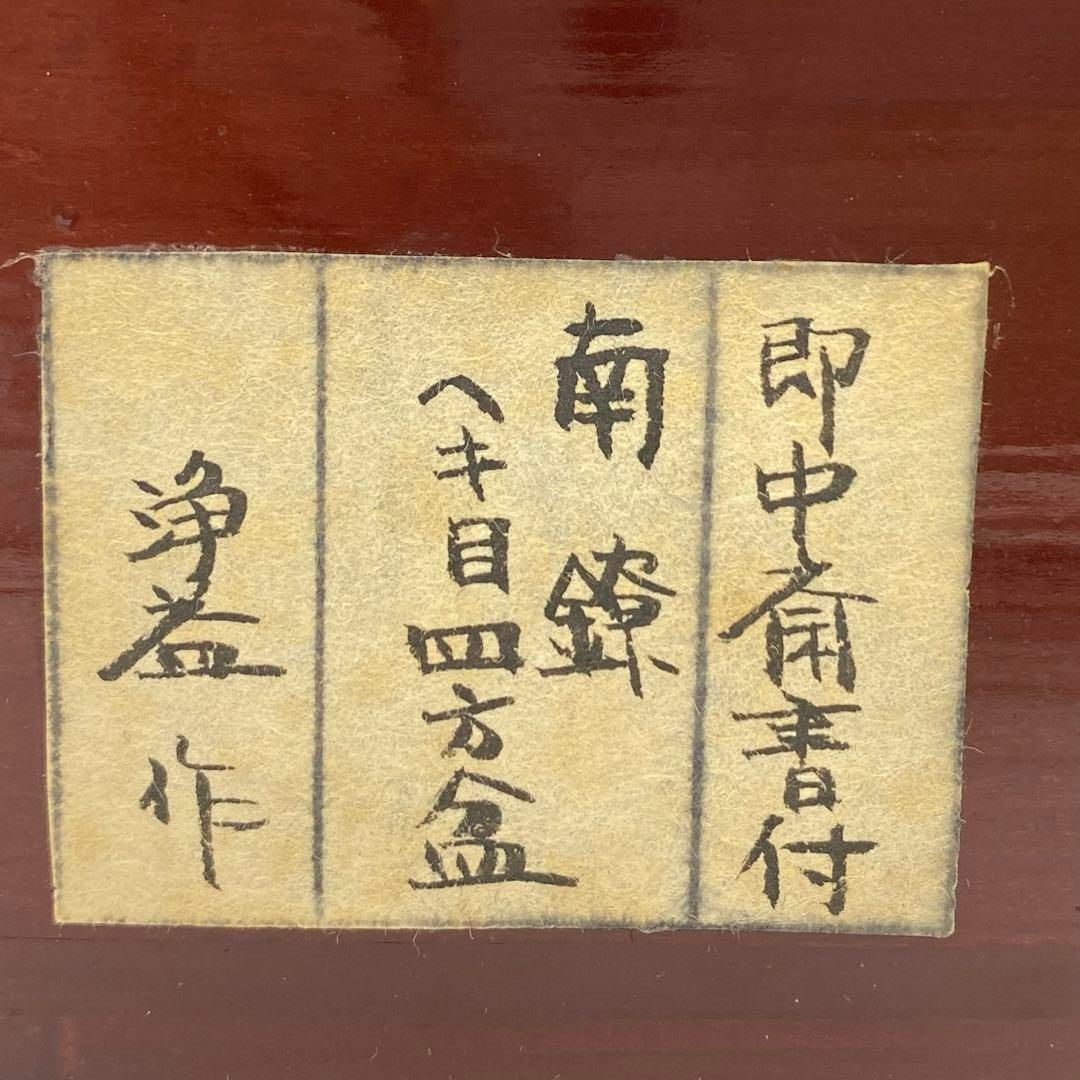 即中斎書付
南鐐
ヘキ目四方盆
浄益作